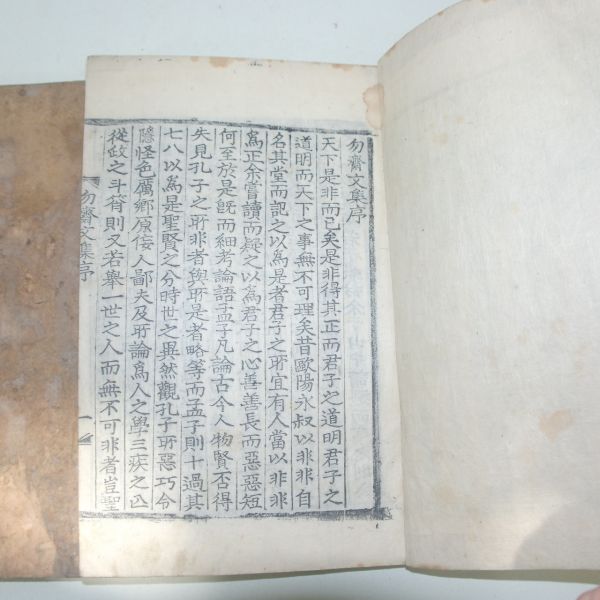 勿齋文集序
天下是非而已矣是非得其正而君子之道明君子之
道明而天下之事無不可理矣昔歐陽永叔以非非自
名其堂而記之以爲是者君子之所宜有人當以非非
爲正余嘗讀而疑之以爲君子之心善善長而惡惡短
何至於是旣而細考論語孟子凡論古今人物賢否得
失見孔子之所非者與所是者略等而孟子則十過其
七八以爲是聖賢之分時世之異然觀孔子所惡巧令
隱怪色厲鄕原佞人鄙夫及所論爲人之學三疾之亾
從政之斗筲則又若擧一世之人而無不可非者豈聖
勿齋文集序
一